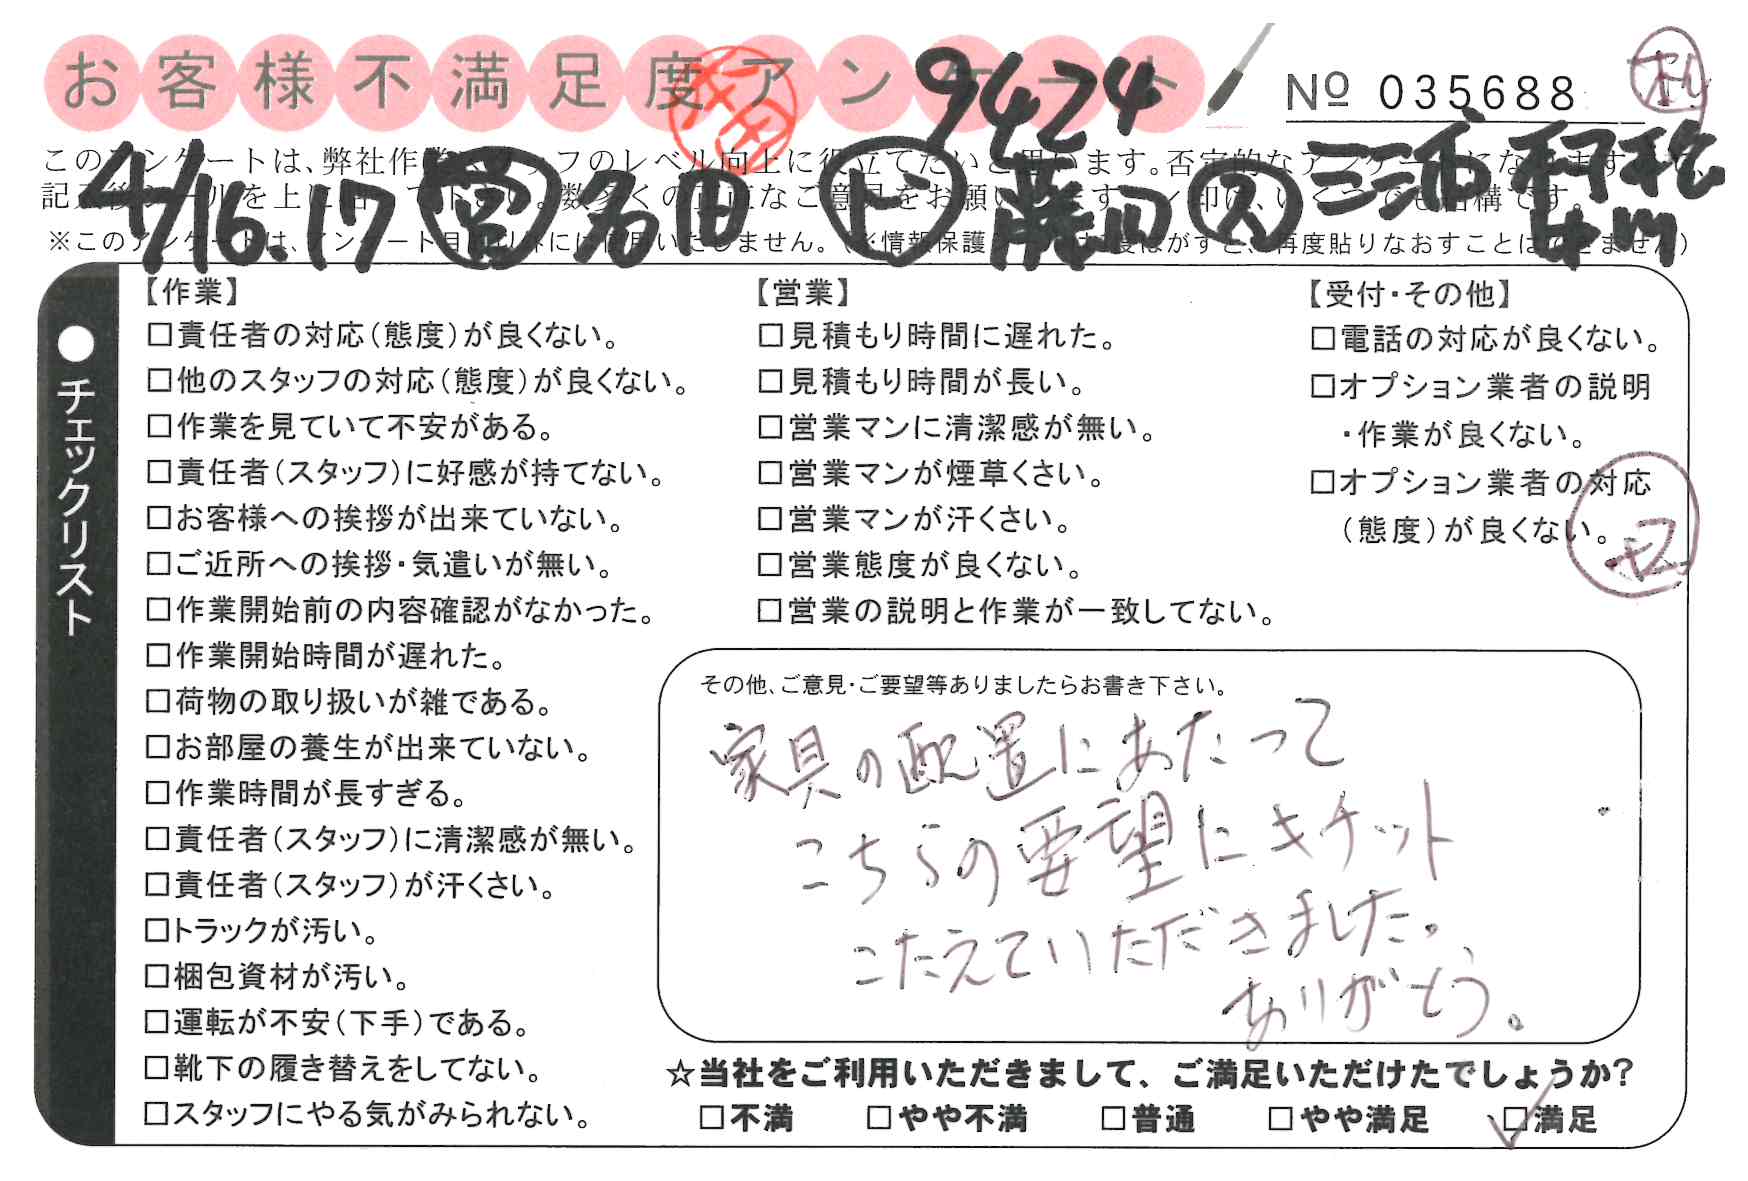 お客様不満足度アンケート
9424
№ 035688
札
このアンケートは、弊社作業スタッフのレベル向上に役立てたいと思います。否定的なアンケートになりますが、
4/16.17 営 名田 ト 藤田 ス 三浦
※このアンケートは、アンケート目的以外には使用いたしません。(※情報保護シール
再度貼りなおすことはできません)
●チェックリスト
【作業】
□責任者の対応(態度)が良くない。
□他のスタッフの対応(態度)が良くない。
□作業を見ていて不安がある。
□責任者(スタッフ)に好感が持てない。
□お客様への挨拶が出来ていない。
□ご近所への挨拶・気遣いが無い。
□作業開始前の内容確認がなかった。
□作業開始時間が遅れた。
□荷物の取り扱いが雑である。
□お部屋の養生が出来ていない。
□作業時間が長すぎる。
□責任者(スタッフ)に清潔感が無い。
□責任者(スタッフ)が汗くさい。
□トラックが汚い。
□梱包資材が汚い。
□運転が不安(下手)である。
□靴下の履き替えをしてない。
□スタッフにやる気がみられない。
【営業】
□見積もり時間に遅れた。
□見積もり時間が長い。
□営業マンに清潔感が無い。
□営業マンが煙草くさい。
□営業マンが汗くさい。
□営業態度が良くない。
□営業の説明と作業が一致してない。
【受付・その他】
□電話の対応が良くない。
□オプション業者の説明
・作業が良くない。
□オプション業者の対応
(態度)が良くない。
その他、ご意見・ご要望等ありましたらお書き下さい。
家具の配置にあたって
こちらの要望にキチット
こたえていただきました。
ありがとう。
☆当社をご利用いただきまして、ご満足いただけたでしょうか?
□不満 □やや不満 □普通 □やや満足 □満足